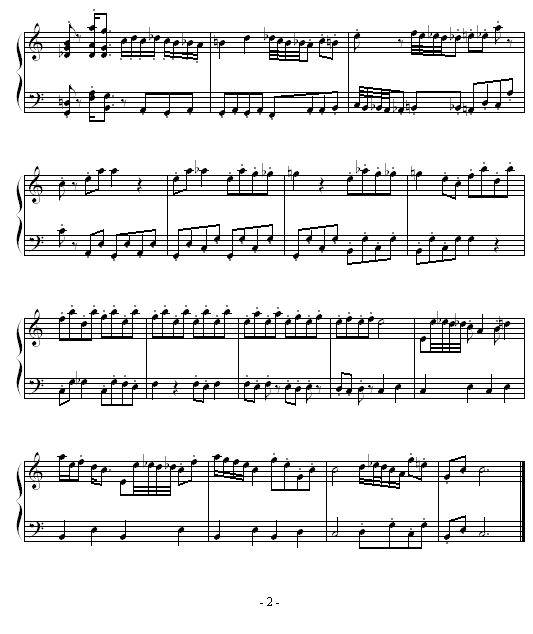 - 2 -